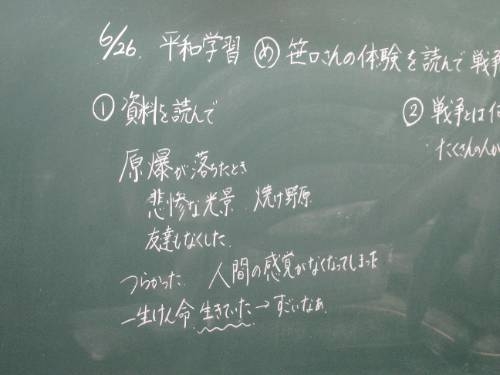 6/26. 平和学習 ㋱ 笹口さんの体験を読んで 戦争
① 資料を読んで
原爆が落ちたとき
悲惨な光景 焼け野原
友達もなくした
つらかった 人間の感覚がなくなってしまった
一生けん命 生きていた→すごいなぁ
② 戦争とは
・たくさんの人が